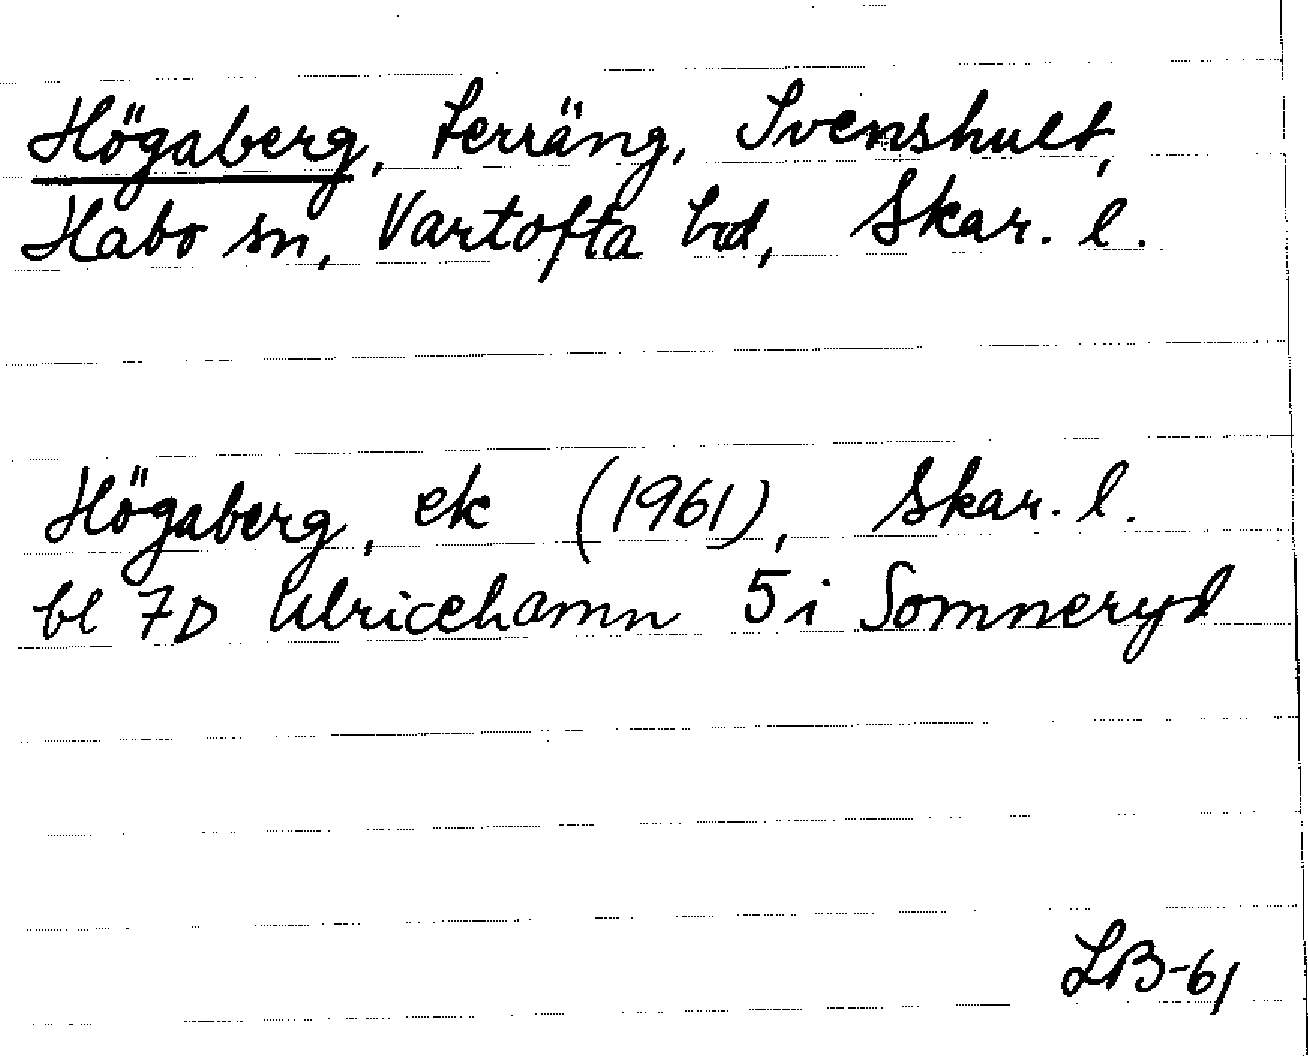 Högaberg, terräng, Svenshult,
Habo sn, Vartofta hd, Skar. l.
Högaberg, ek (1961), Skar. l.
bl 7D Ulricehamn 5i Somneryd
LB-61